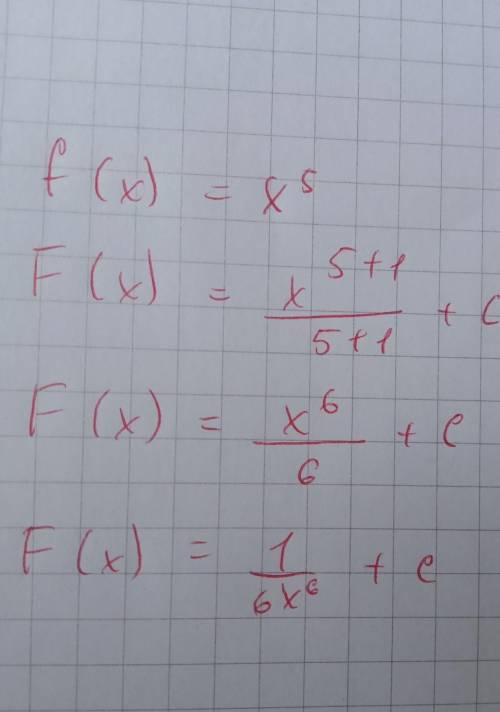 f(x) = x⁵
F(x) = x⁵⁺¹/5+1 + C
F(x) = x⁶/6 + c
F(x) = 1/6x⁶ + c